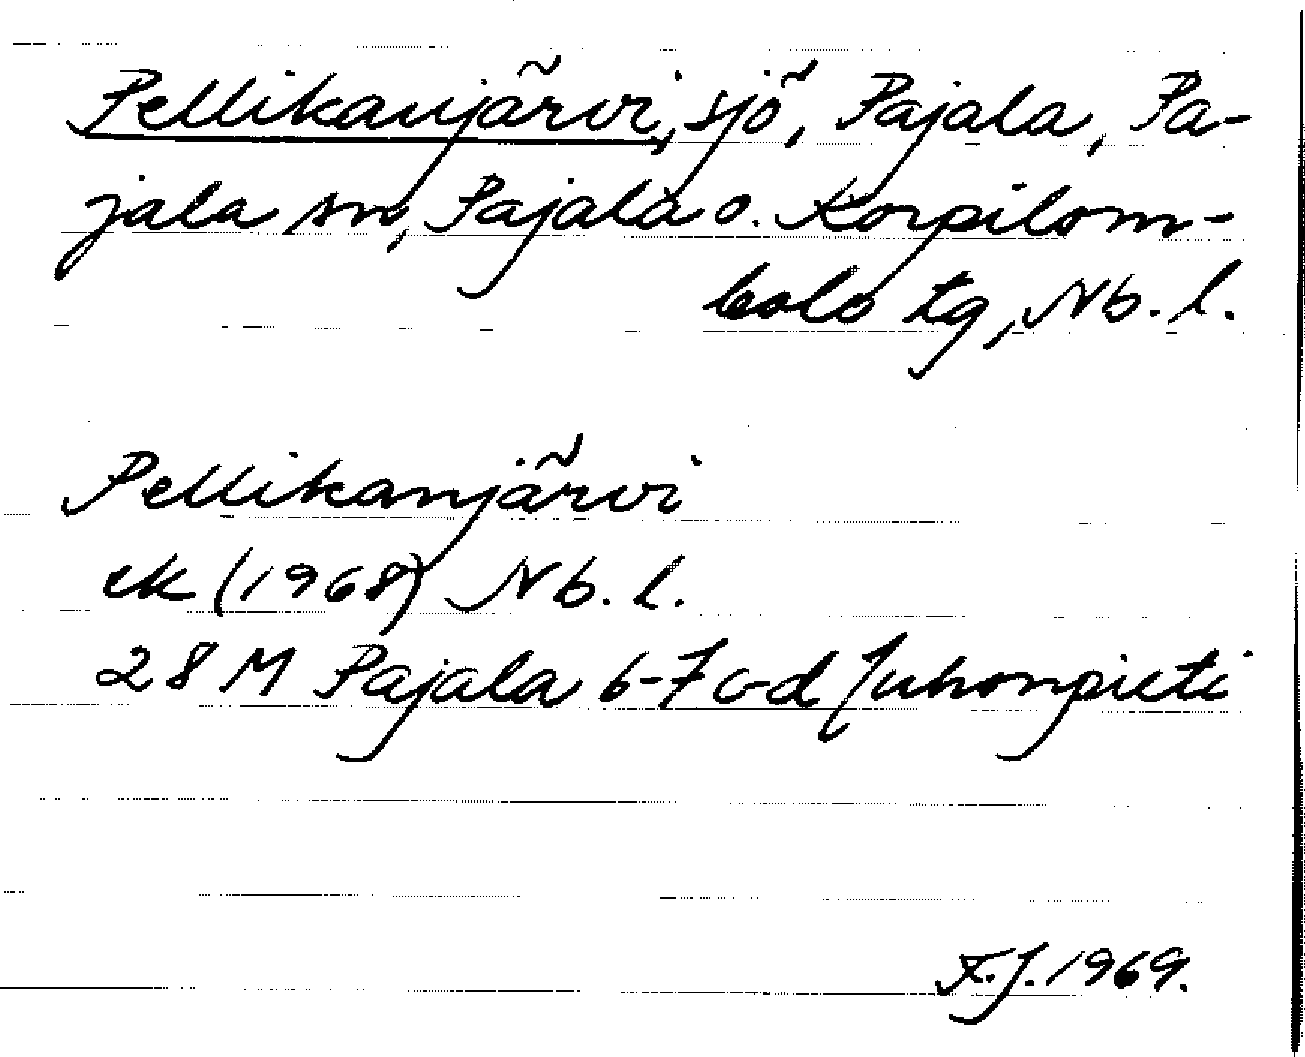 Pellikanjärvi, sjö, Pajala, Pa-
jala sn, Pajala o. Korpilom-
bolo tg, Nb. l.
Pellikanjärvi
ek (1968) Nb. l.
28 M Pajala 6-7 c-d Juhonpieti
F.J. 1969.